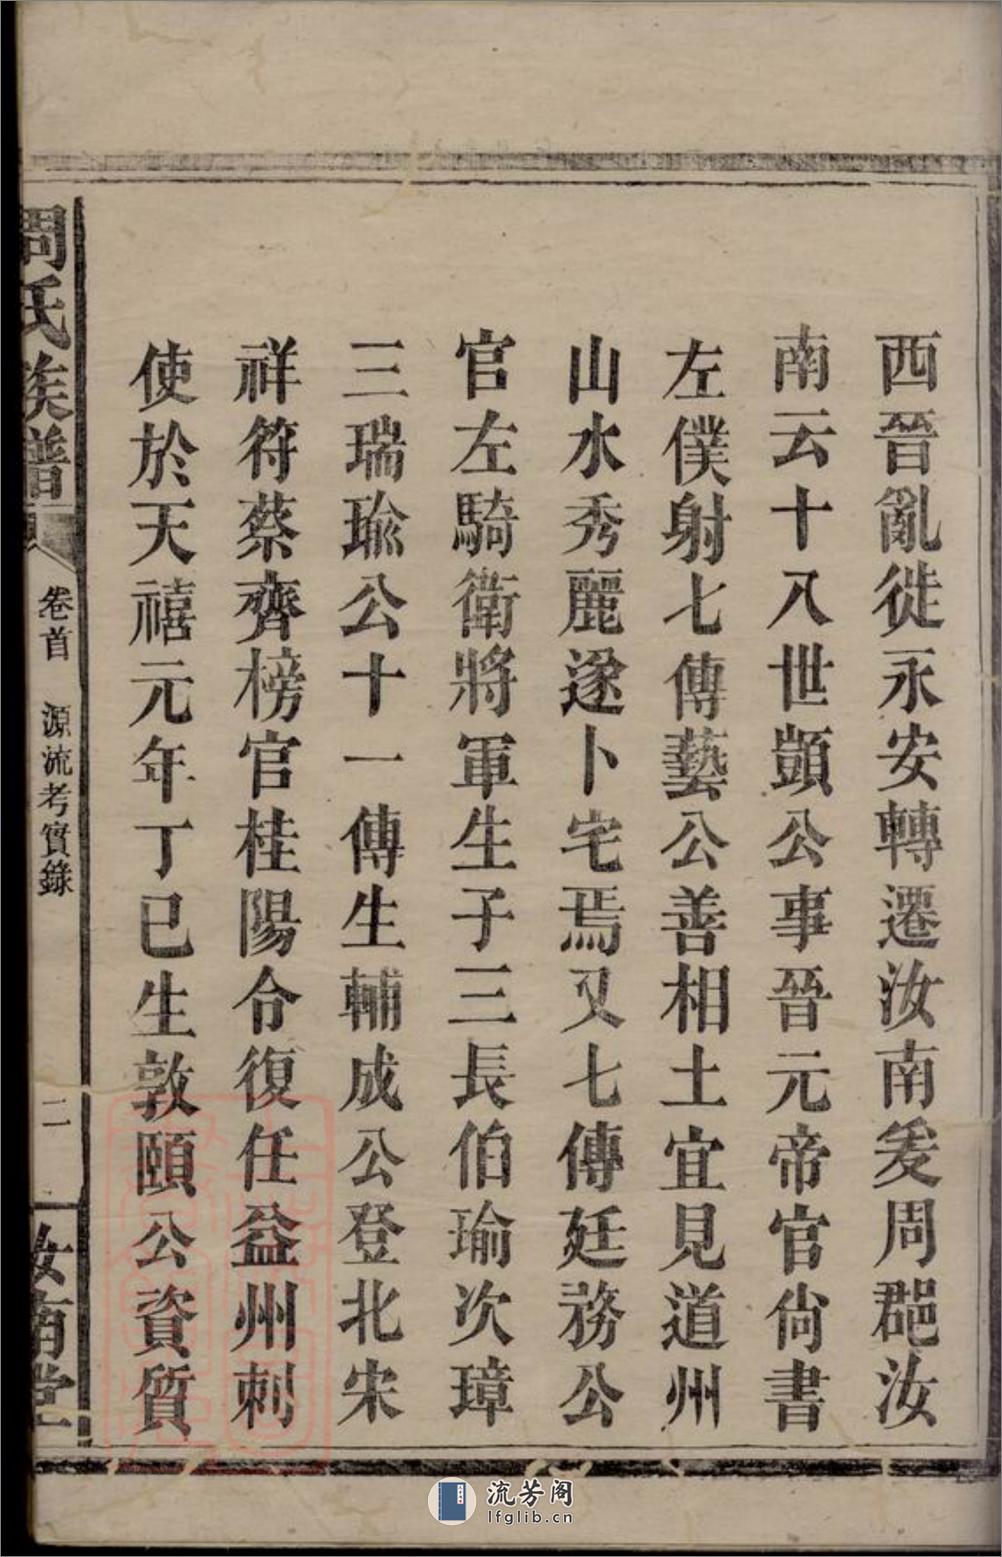 西晉亂徙永安轉遷汝南爰周郡汝
南云十八世顗公事晉元帝官尙書
左僕射七傳藝公善相土宜見道州
山水秀麗遂卜宅焉又七傳廷務公
官左騎衛將軍生子三長伯瑜次璋
三瑞瑜公十一傳生輔成公登北宋
祥符蔡齊榜官桂陽令復任益州刺
使於天禧元年丁巳生敦頤公資質
周氏族譜
卷首 源流考實錄
二
汝南堂
流芳阁
lfglib.cn